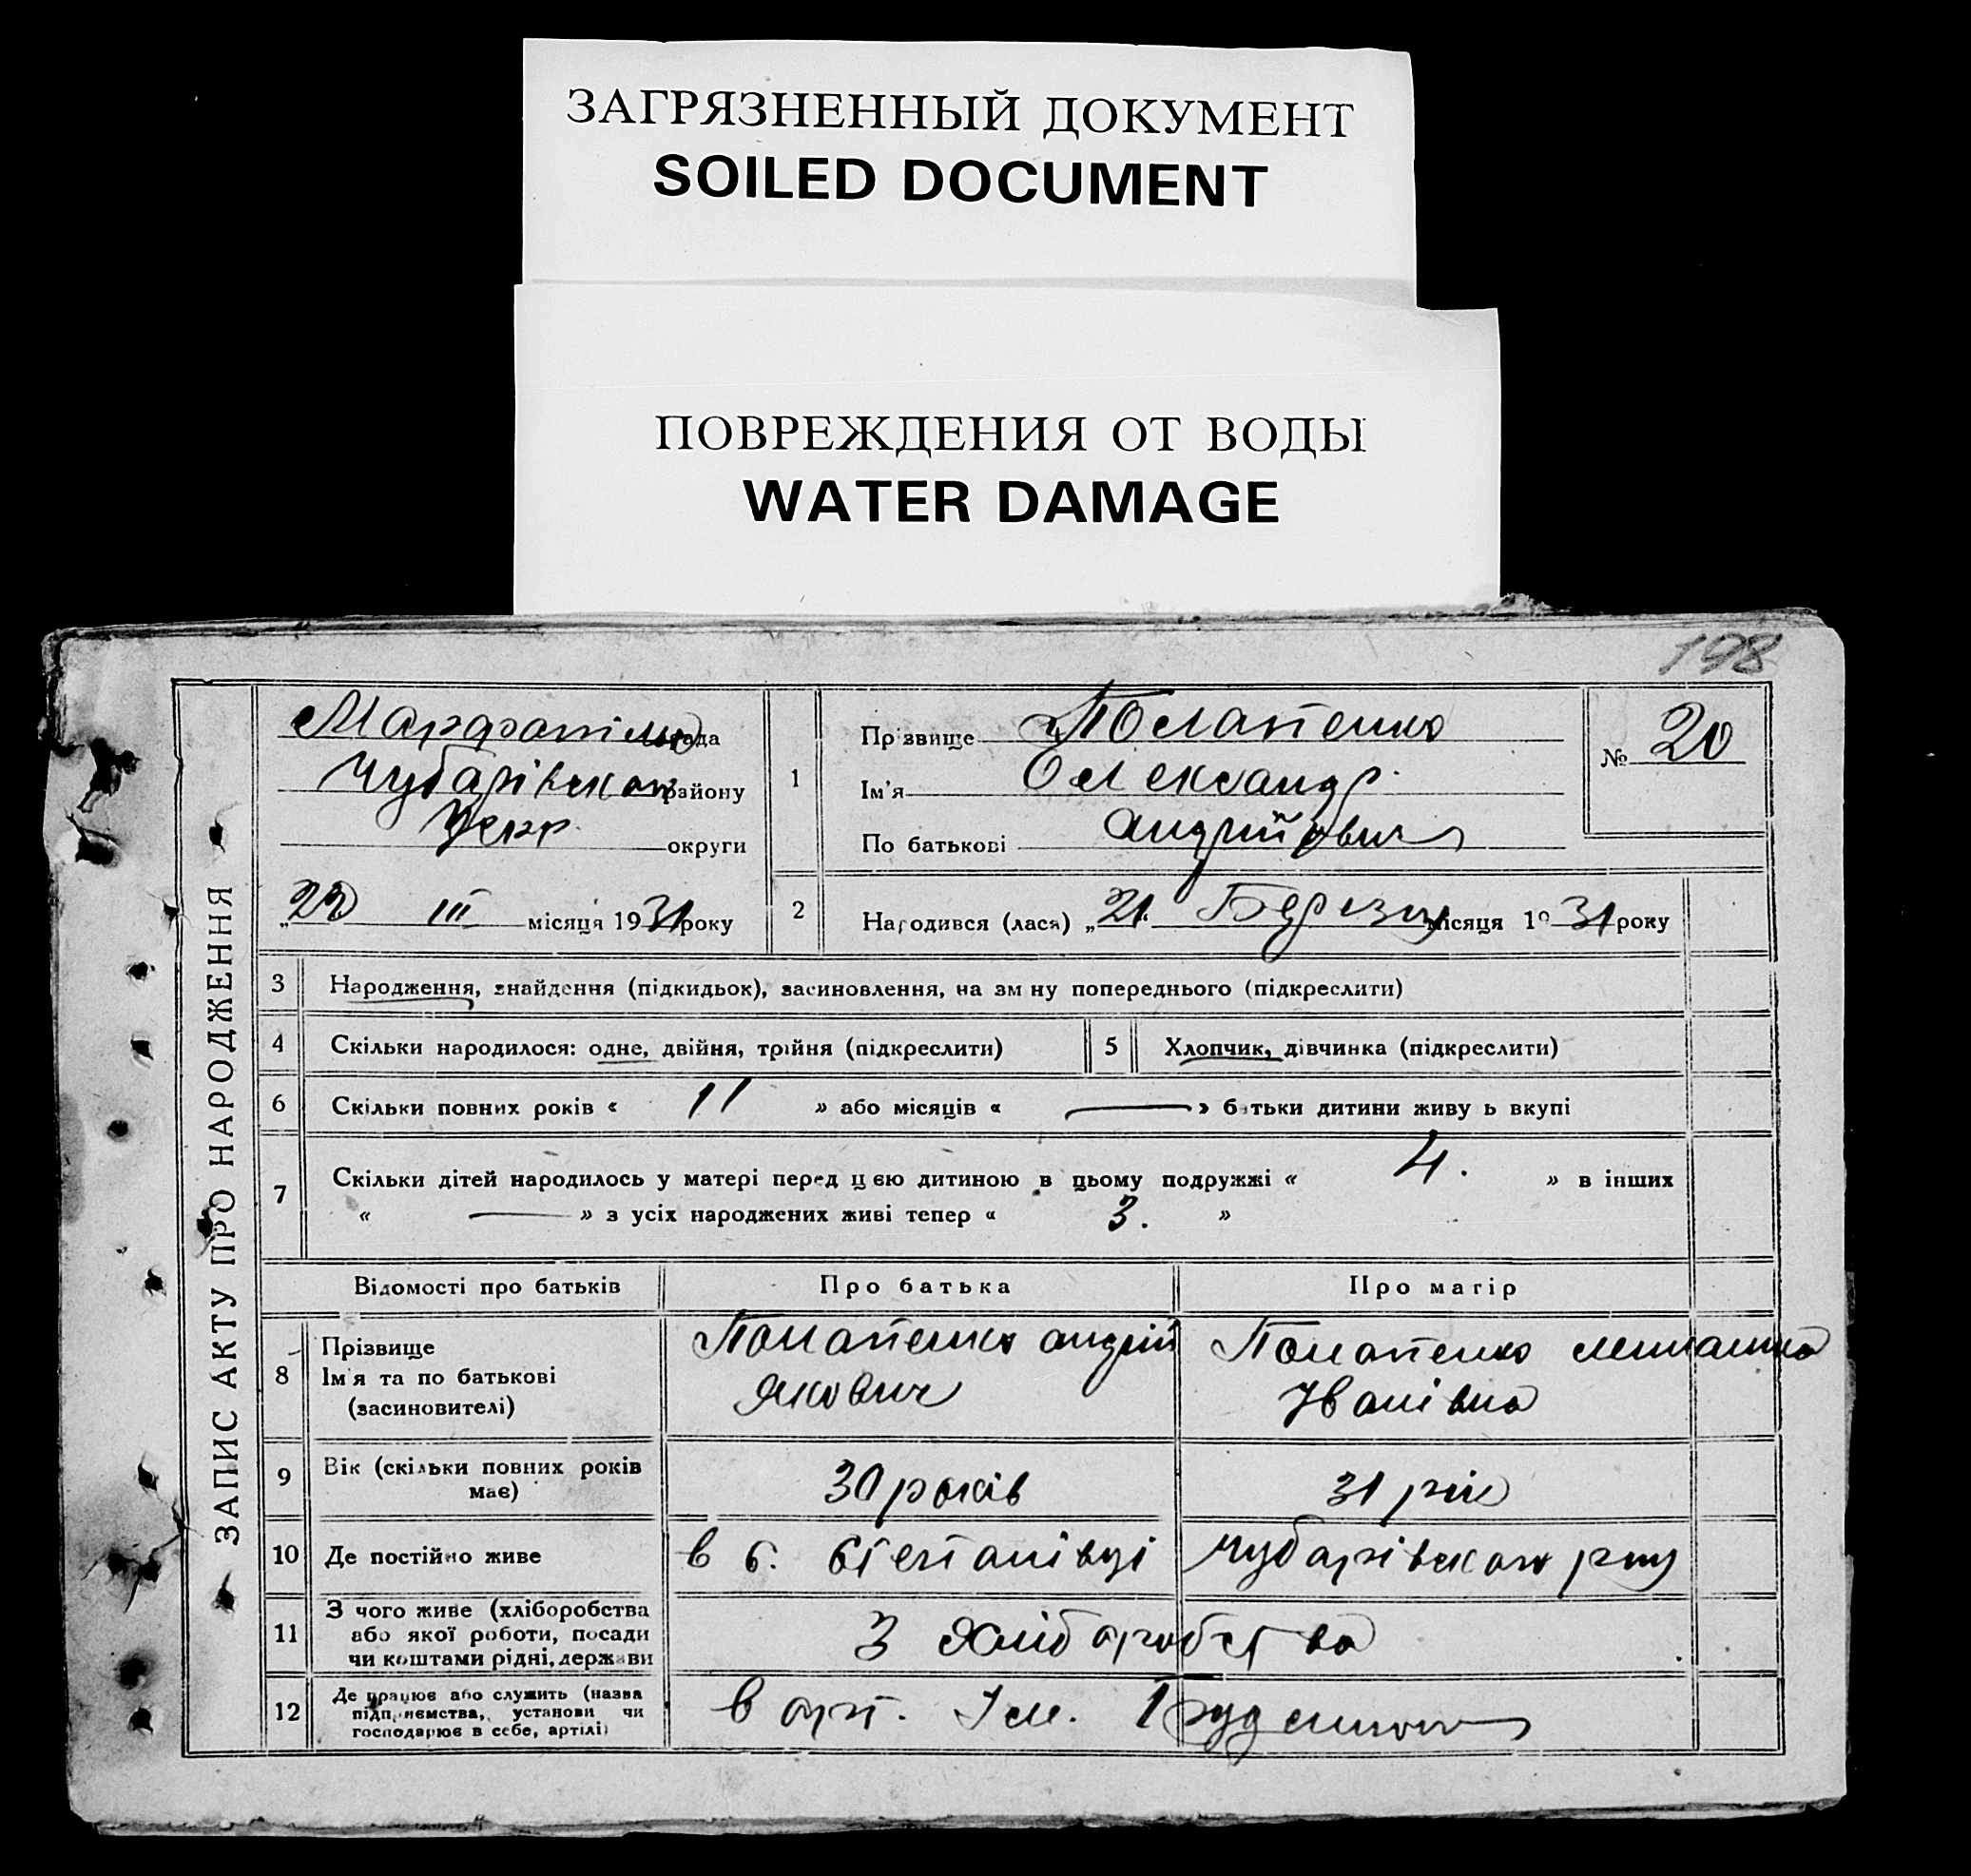 ЗАГРЯЗНЕННЫЙ ДОКУМЕНТ
SOILED DOCUMENT
ПОВРЕЖДЕНИЯ ОТ ВОДЫ
WATER DAMAGE
198
ЗАПИС АКТУ ПРО НАРОДЖЕННЯ
рада
Чубарівског району
округи
22 III місяця 1931 року
1
Прізвище
Ім'я Олександр
По батькові Андрійович
№ 20
2 Народився (лася) „21" Березня місяця 1931 року
3 Народження, знайдення (підкидьок), засиновлення, на зміну попереднього (підкреслити)
4 Скільки народилося: одне, двійня, трійня (підкреслити)
5 Хлопчик, дівчинка (підкреслити)
6 Скільки повних років « 11 » або місяців « — » батьки дитини живуть вкупі
7 Скільки дітей народилось у матері перед цією дитиною в цьому подружжі « 4. » в інших
« — » з усіх народжених живі тепер « 3. »
Відомості про батьків Про батька Про матір
8 Прізвище
Ім'я та по батькові
(засиновителі)
Андрій
Якович
Іванівна
9 Вік (скільки повних років
має)
30 років 31 рік
10 Де постійно живе в с. Степанівці Чубарівског р-ну
11 З чого живе (хліборобства
або якої роботи, посади
чи коштами рідні, держави
З хліборобства
12 Де працює або служить (назва
підприємства, установи чи
господарює в себе, артілі)
в арт. Ім.